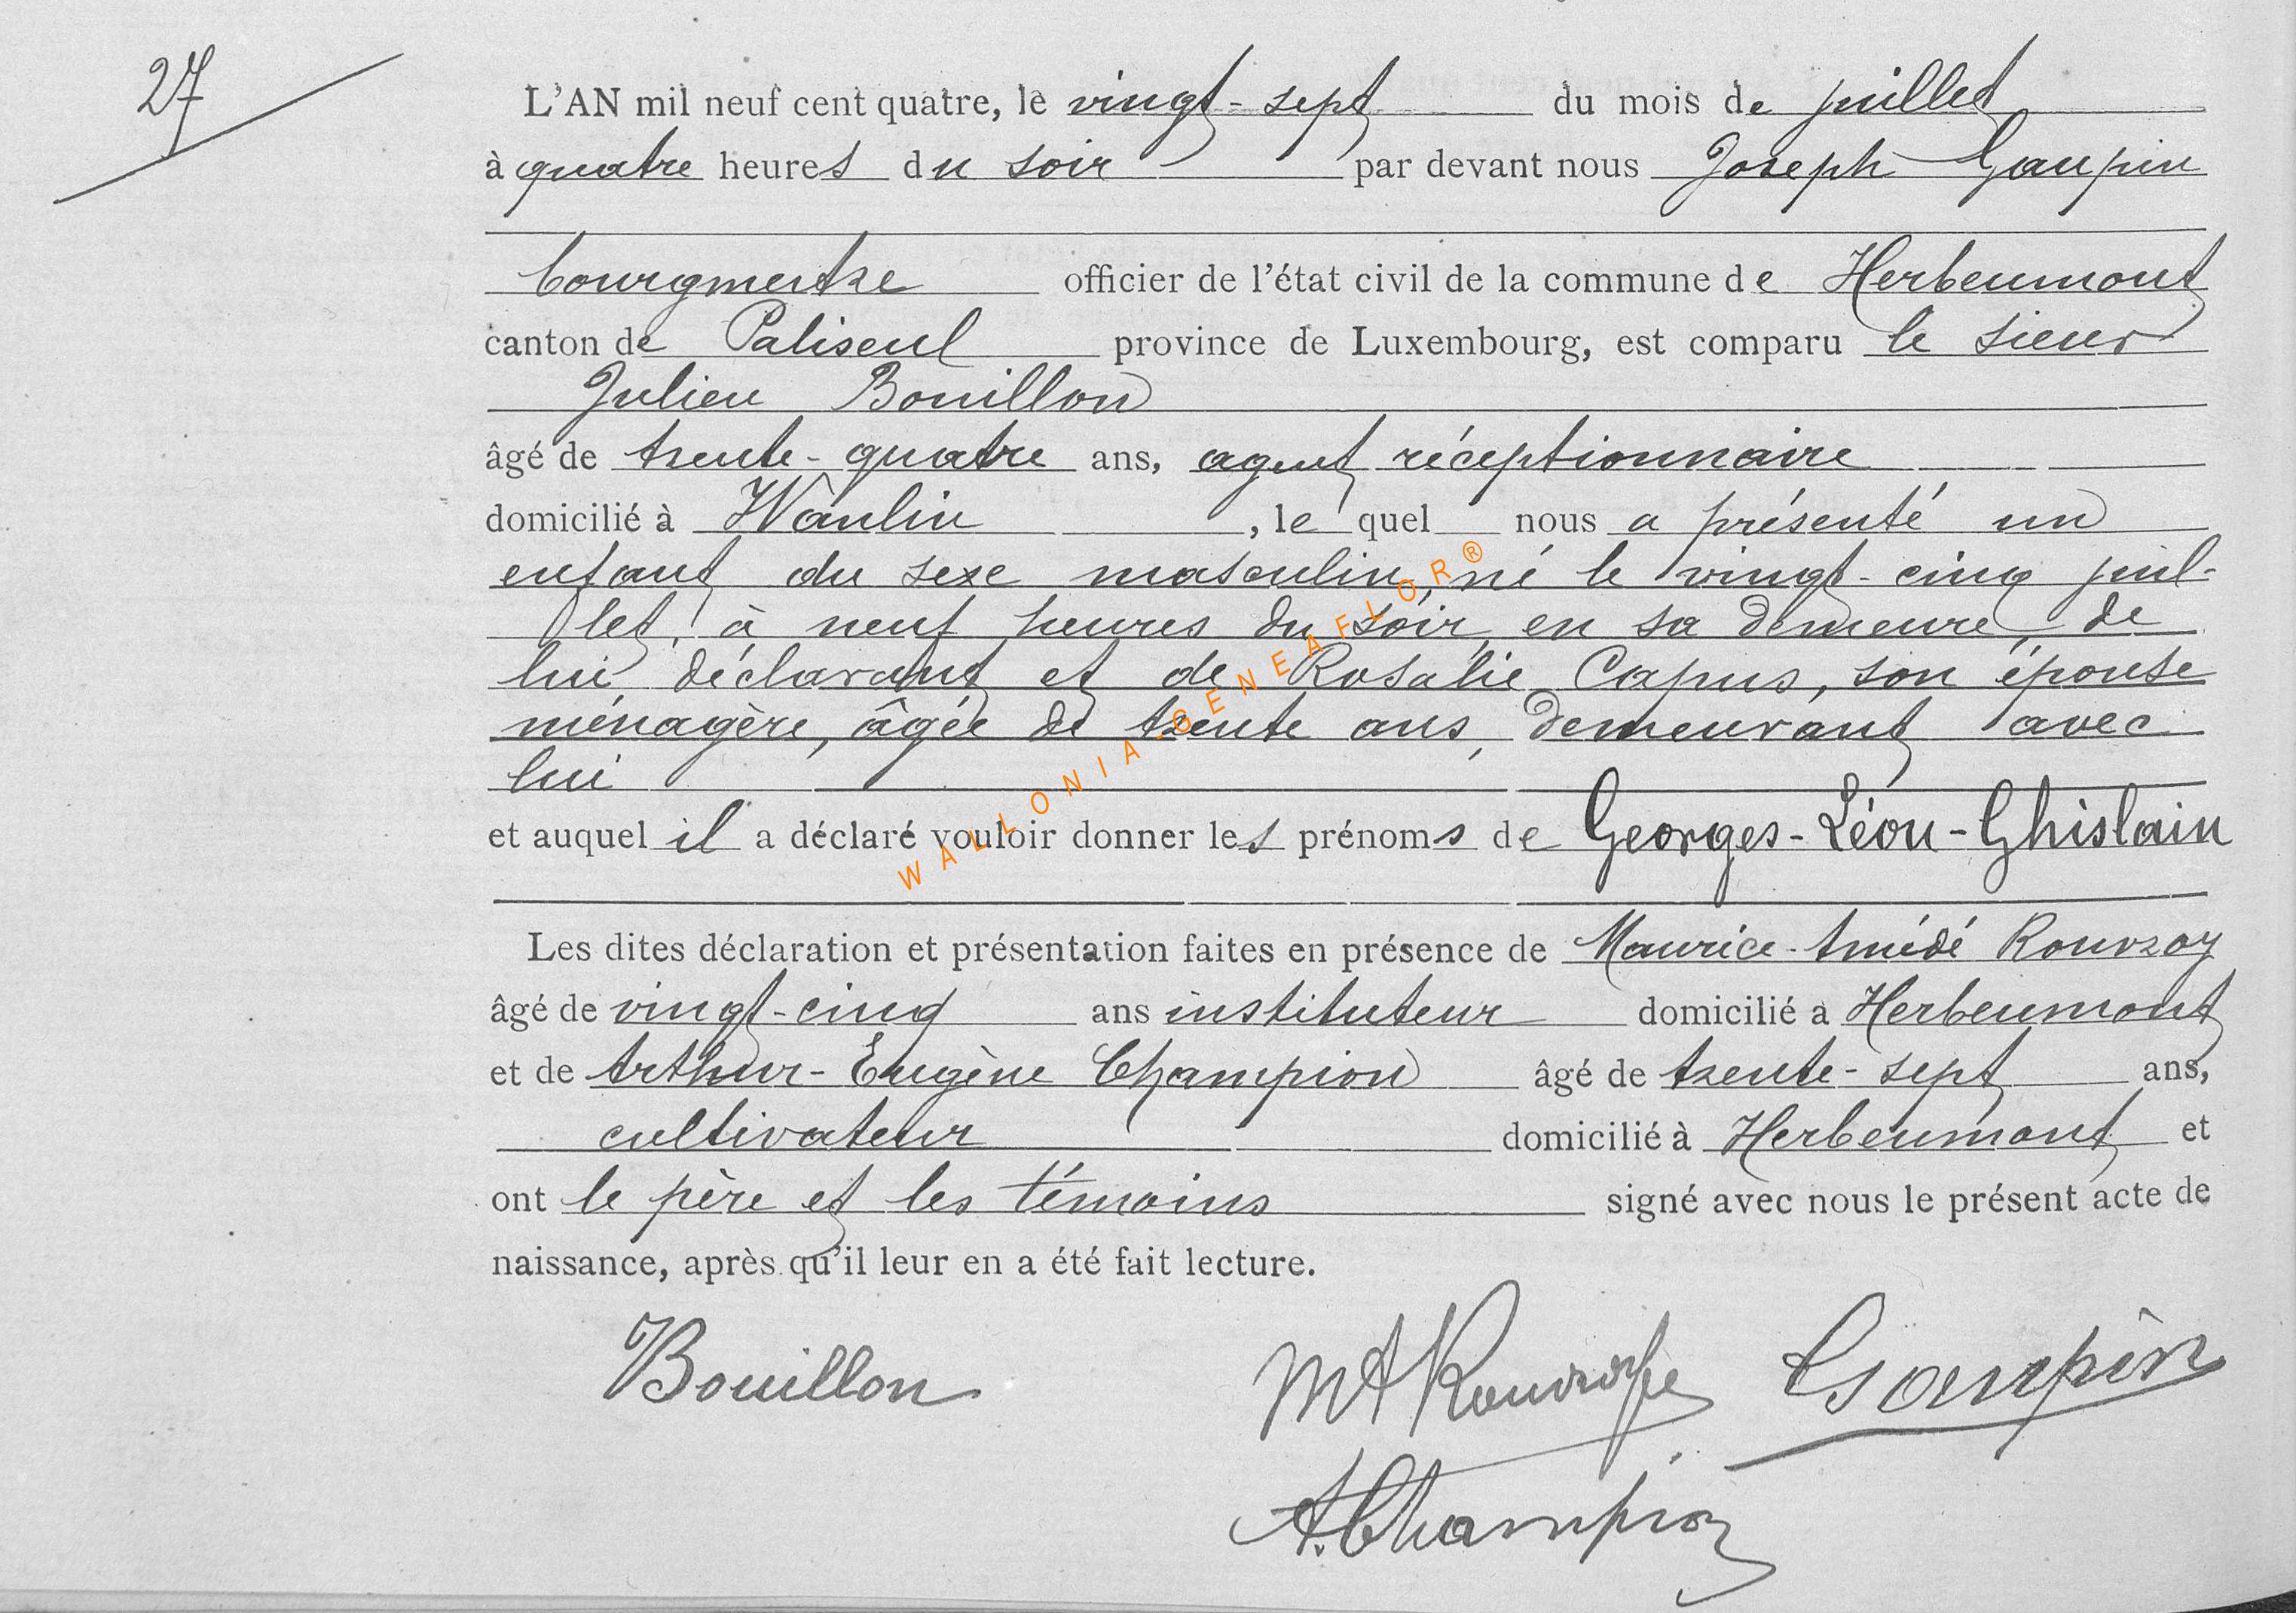 27
L'AN mil neuf cent quatre, le vingt-sept du mois de juillet
à quatre heures du soir par devant nous Joseph Gaupin
bourgmestre officier de l'état civil de la commune de Herbeumont
canton de Paliseul province de Luxembourg, est comparu le sieur
Julien Bouillon
âgé de trente-quatre ans, agent réceptionnaire
domicilié à Wanlin, le quel nous a présenté un
enfant du sexe masculin, né le vingt-cinq juil-
let, à neuf heures du soir, en sa demeure, de
lui déclarant et de Rosalie Capus, son épouse
ménagère, âgée de trente ans, demeurant avec
lui
et auquel il a déclaré vouloir donner les prénoms de Georges-Léon-Ghislain
Les dites déclaration et présentation faites en présence de Maurice-Amédé
âgé de vingt-cinq ans instituteur domicilié à Herbeumont
et de Arthur-Eugène Champion âgé de trente-sept ans,
cultivateur domicilié à Herbeumont et
ont le père et les témoins signé avec nous le présent acte de
naissance, après qu'il leur en a été fait lecture.
Bouillon
Gaupin
A. Champion
WALLONIA-GENEAFLOR®